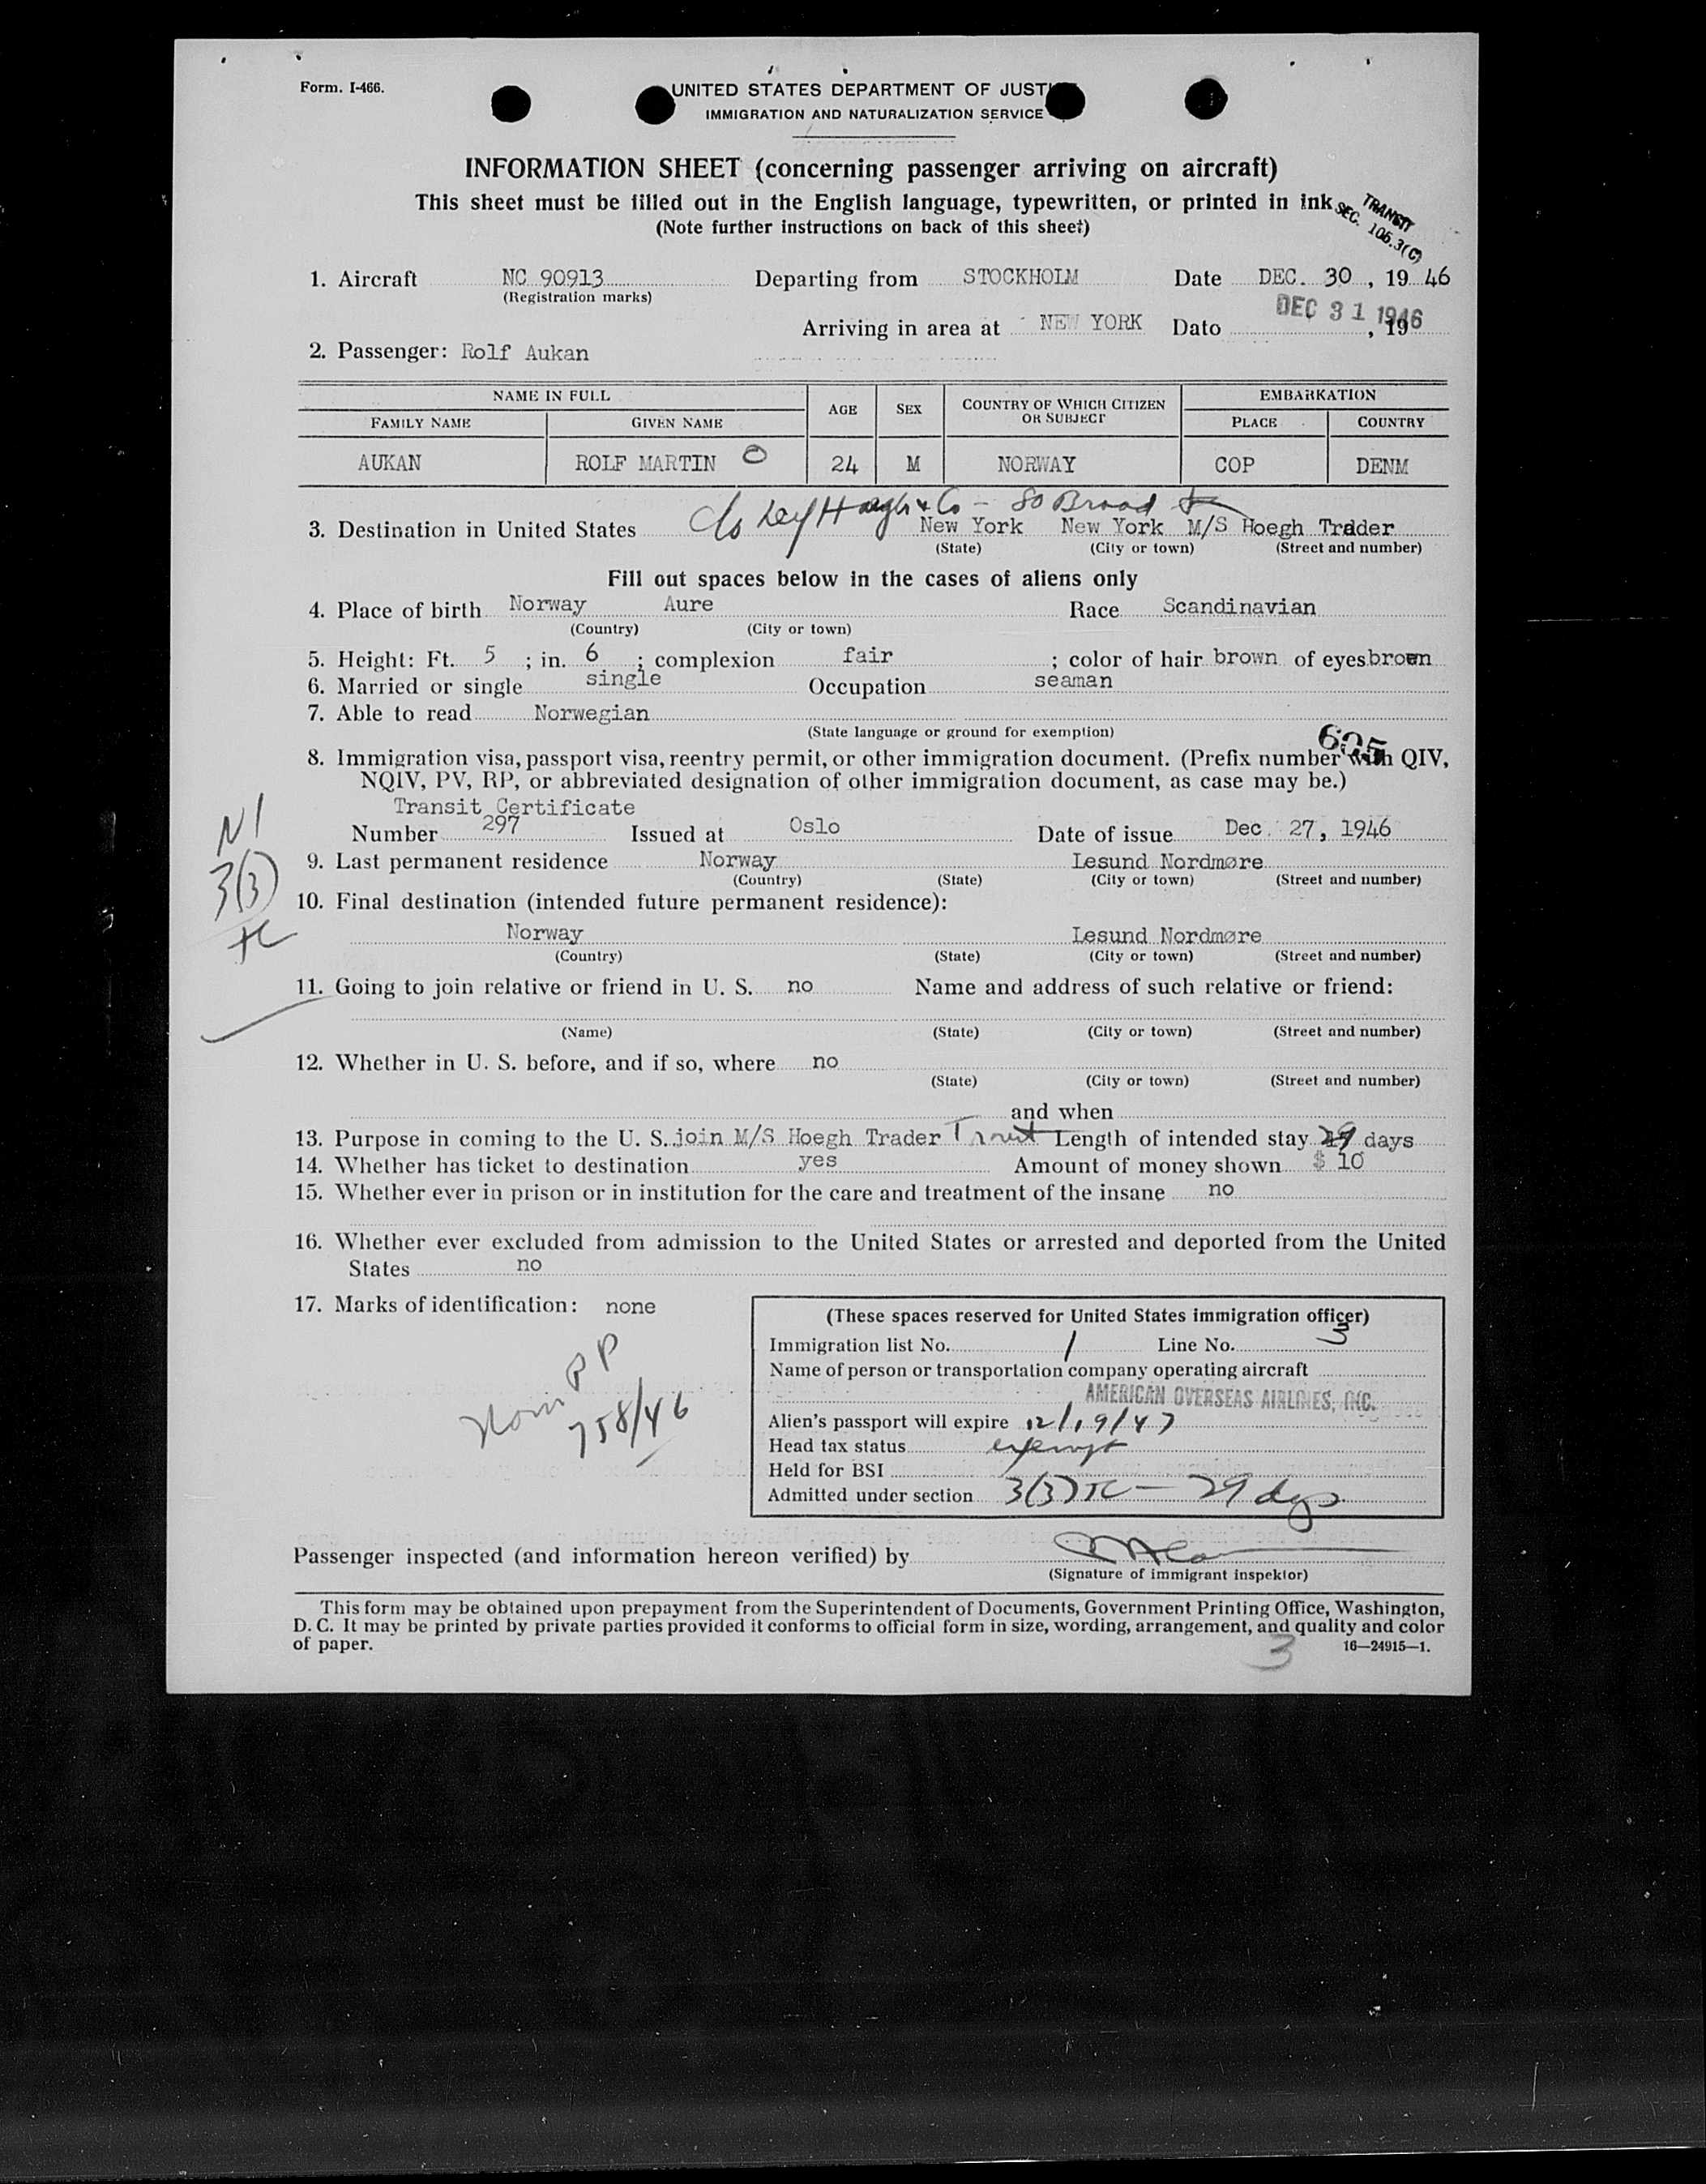 Form. I-466.
UNITED STATES DEPARTMENT OF JUSTI
IMMIGRATION AND NATURALIZATION SERVICE
INFORMATION SHEET (concerning passenger arriving on aircraft)
This sheet must be filled out in the English language, typewritten, or printed in ink
(Note further instructions on back of this sheet)
TRANSIT
SEC. 105.3(C)
1. Aircraft NC 90913 Departing from STOCKHOLM Date DEC. 30, 19 46
(Registration marks)
Arriving in area at NEW YORK Dato DEC 31 1946, 19
2. Passenger: Rolf Aukan
NAME IN FULL AGE SEX COUNTRY OF WHICH CITIZEN OR SUBJECT EMBARKATION
FAMILY NAME GIVEN NAME PLACE COUNTRY
AUKAN ROLF MARTIN O 24 M NORWAY COP DENM
c/o Leif Hoegh & Co - 80 Broad St
3. Destination in United States New York New York M/S Hoegh Trader
(State) (City or town) (Street and number)
Fill out spaces below in the cases of aliens only
4. Place of birth Norway Aure Race Scandinavian
(Country) (City or town)
5. Height: Ft. 5 ; in. 6 ; complexion fair ; color of hair brown of eyes brown
6. Married or single single Occupation seaman
7. Able to read Norwegian
(State language or ground for exemption)
605
8. Immigration visa, passport visa, reentry permit, or other immigration document. (Prefix number with QIV,
NQIV, PV, RP, or abbreviated designation of other immigration document, as case may be.)
Transit Certificate
Number 297 Issued at Oslo Date of issue Dec. 27, 1946
N1
3(3)
TC
9. Last permanent residence Norway Lesund Nordmøre
(Country) (State) (City or town) (Street and number)
10. Final destination (intended future permanent residence):
Norway Lesund Nordmøre
(Country) (State) (City or town) (Street and number)
11. Going to join relative or friend in U. S. no Name and address of such relative or friend:
(Name) (State) (City or town) (Street and number)
12. Whether in U. S. before, and if so, where no
(State) (City or town) (Street and number)
and when
13. Purpose in coming to the U. S. join M/S Hoegh Trader Length of intended stay 29 days
14. Whether has ticket to destination yes Amount of money shown $ 10
15. Whether ever in prison or in institution for the care and treatment of the insane no
16. Whether ever excluded from admission to the United States or arrested and deported from the United
States no
17. Marks of identification: none
Nom PP
758/46
(These spaces reserved for United States immigration officer)
Immigration list No. 1 Line No. 3
Name of person or transportation company operating aircraft
AMERICAN OVERSEAS AIRLINES, INC.
Alien's passport will expire 12/19/47
Head tax status exempt
Held for BSI
Admitted under section 3(3) TC - 29 days
Passenger inspected (and information hereon verified) by
(Signature of immigrant inspektor)
This form may be obtained upon prepayment from the Superintendent of Documents, Government Printing Office, Washington,
D. C. It may be printed by private parties provided it conforms to official form in size, wording, arrangement, and quality and color
of paper. 16—24915—1.
3